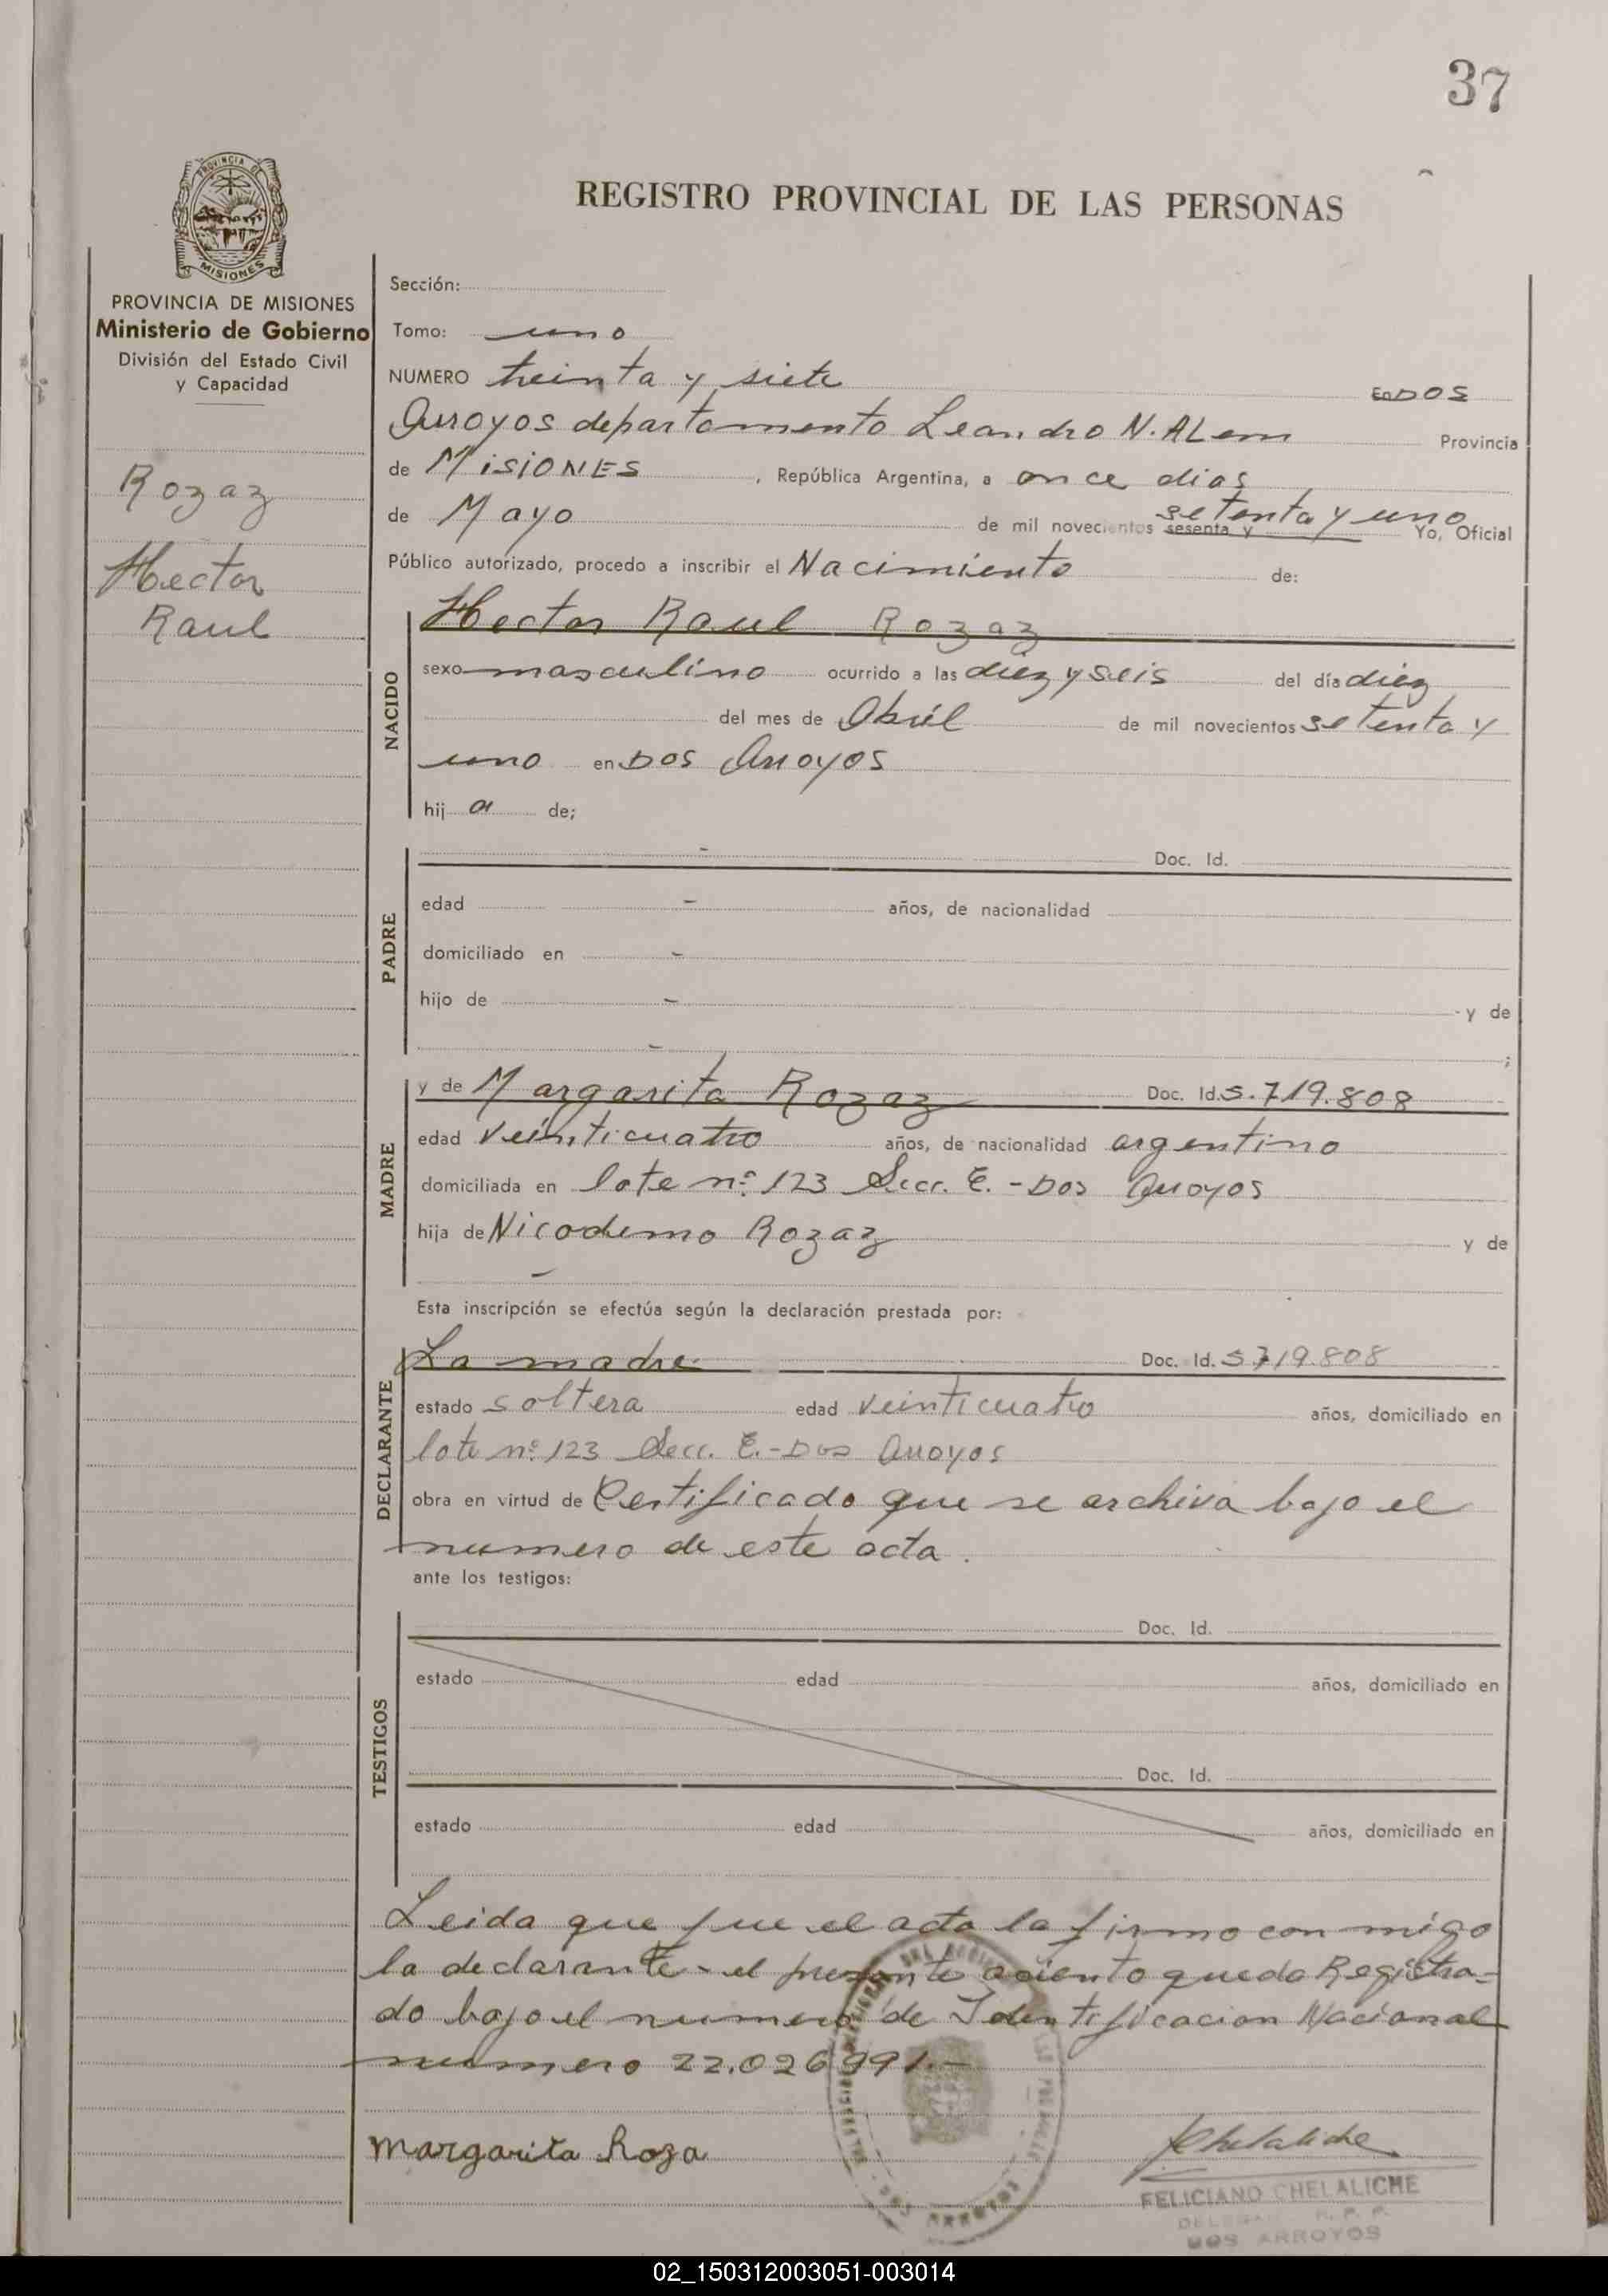 37
REGISTRO PROVINCIAL DE LAS PERSONAS
PROVINCIA DE
MISIONES
PROVINCIA DE MISIONES
Ministerio de Gobierno
División del Estado Civil
y Capacidad
Rozaz
Hector
Raul
Sección:
Tomo: uno
NUMERO treinta y siete En DOS
Arroyos departamento Leandro N. ALem Provincia
de MisiONES, República Argentina, a once dias
de Mayo de mil novecientos sesenta y setenta y uno Yo, Oficial
Público autorizado, procedo a inscribir el Nacimiento de:
NACIDO
Hector Raul Rozaz
sexo masculino ocurrido a las diez y seis del día diez
del mes de Abril de mil novecientos setenta y
uno en DOS Arroyos
hij a de;
PADRE
- Doc. Id.
edad - años, de nacionalidad
domiciliado en -
hijo de - y de
- ;
MADRE
y de Margarita Rozaz Doc. Id. 5.719.808
edad veinticuatro años, de nacionalidad argentino
domiciliada en lote nº 123 Secc. E. - Dos Arroyos
hija de Nicodemo Rozaz y de
-
Esta inscripción se efectúa según la declaración prestada por:
DECLARANTE
La madre Doc. Id. 5.719.808
estado soltera edad veinticuatro años, domiciliado en
lote nº 123 Secc. E. - Dos Arroyos
obra en virtud de Certificado que se archiva bajo el
numero de este acta.
ante los testigos:
TESTIGOS
Doc. Id.
estado edad años, domiciliado en
Doc. Id.
estado edad años, domiciliado en
Leida que fue el acta la firmo con migo
la declarante - el presente asiento queda Registra-
do bajo el numero de Identificacion Nacional
numero 22.026.991.-
Margarita Roza
Chelaliche
FELICIANO CHELALICHE
R. P. P.
DOS ARROYOS
02_150312003051-003014